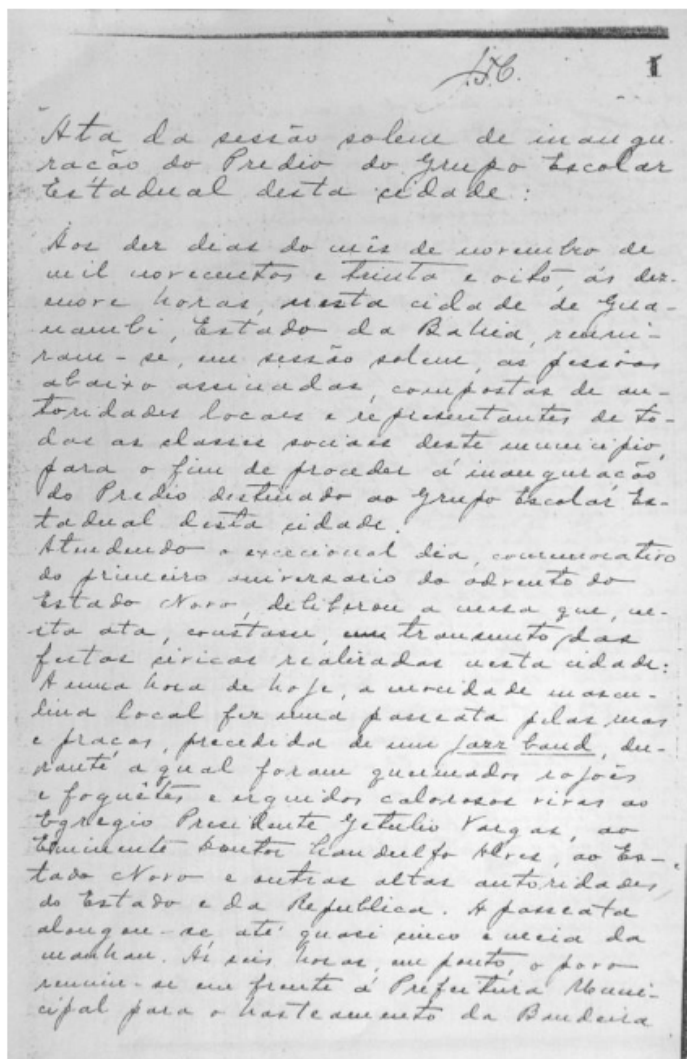 J.C. 1
Ata da sessão solene de inaugu-
ração do Predio do Grupo Escolar
Estadual desta cidade:
Aos dez dias do mês de novembro de
mil novecentos e trinta e oito, ás deze-
nove horas, nesta cidade de Gua-
nambi, Estado da Bahia, reuni-
ram-se, em sessão solene, as pessôas
abaixo assinadas, compostas de au-
toridades locaes e representantes de to-
das as classes sociaes deste municipio,
para o fim de proceder á inauguração
do Predio destinado ao Grupo Escolar Es-
tadual desta cidade.
Atendendo o excecional dia, comemorativo
do primeiro aniversario do advento do
Estado Novo, deliberou a mesa que, nes-
ta ata, constasse, das
festas civicas realizadas nesta cidade:
A uma hora de hoje, a mocidade mascu-
lina local fez uma passeata pelas ruas
e praças, precedida de um jazz band, du-
rante a qual foram queimados rojões
e foguêtes e erguidos calorosos vivas ao
Egregio Presidente Getulio Vargas, ao
Eminente Doutor Landulfo Alves, ao Es-
tado Novo e outras altas autoridades
do Estado e da Republica. A passeata
alongou-se até quasi cinco e meia da
manhan. Ás seis horas, em ponto, o povo
reuniu-se em frente á Prefeitura Muni-
cipal para o hasteamento da Bandeira